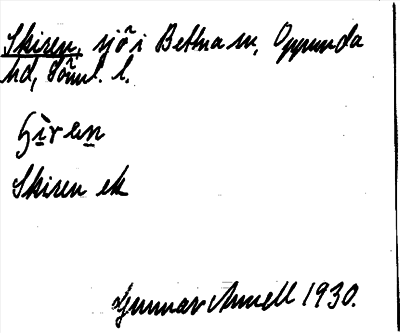 Skiren, sjö i Bettna sn, Oppunda
hd, Söml. l.
Skiren ek
Gunnar Annell 1930.